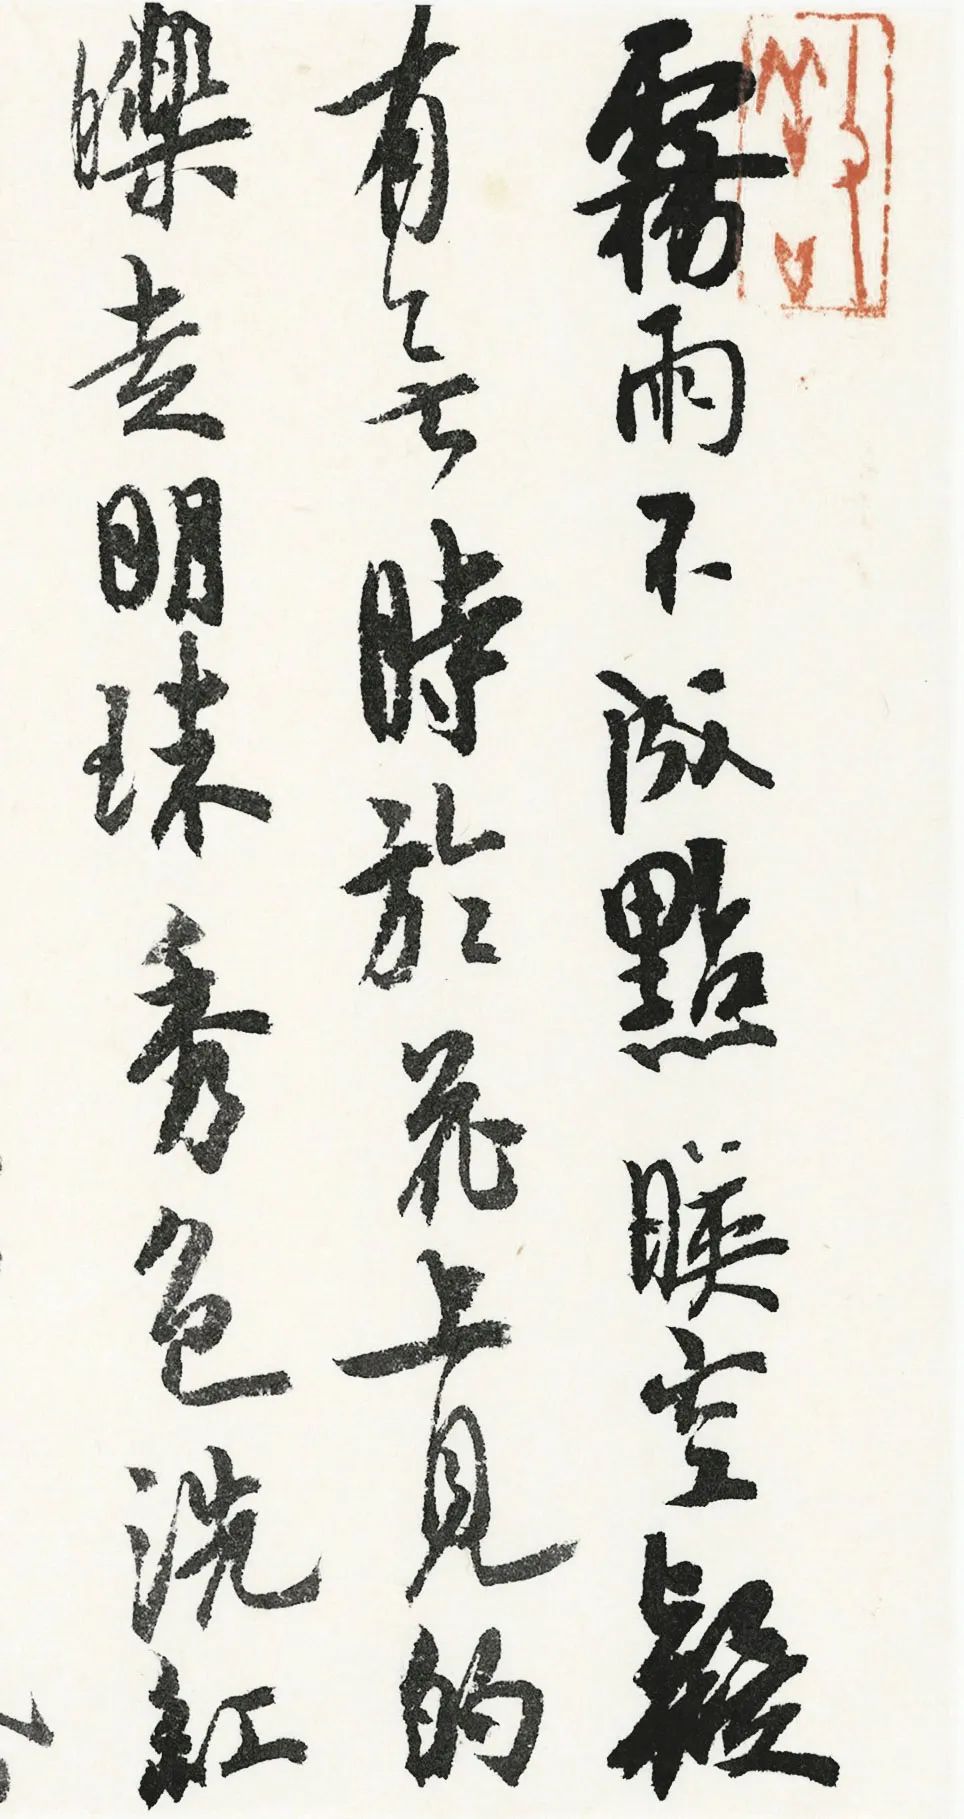 霧雨不成點暎空疑
有無時於花上見的
皪走明珠秀色洗紅